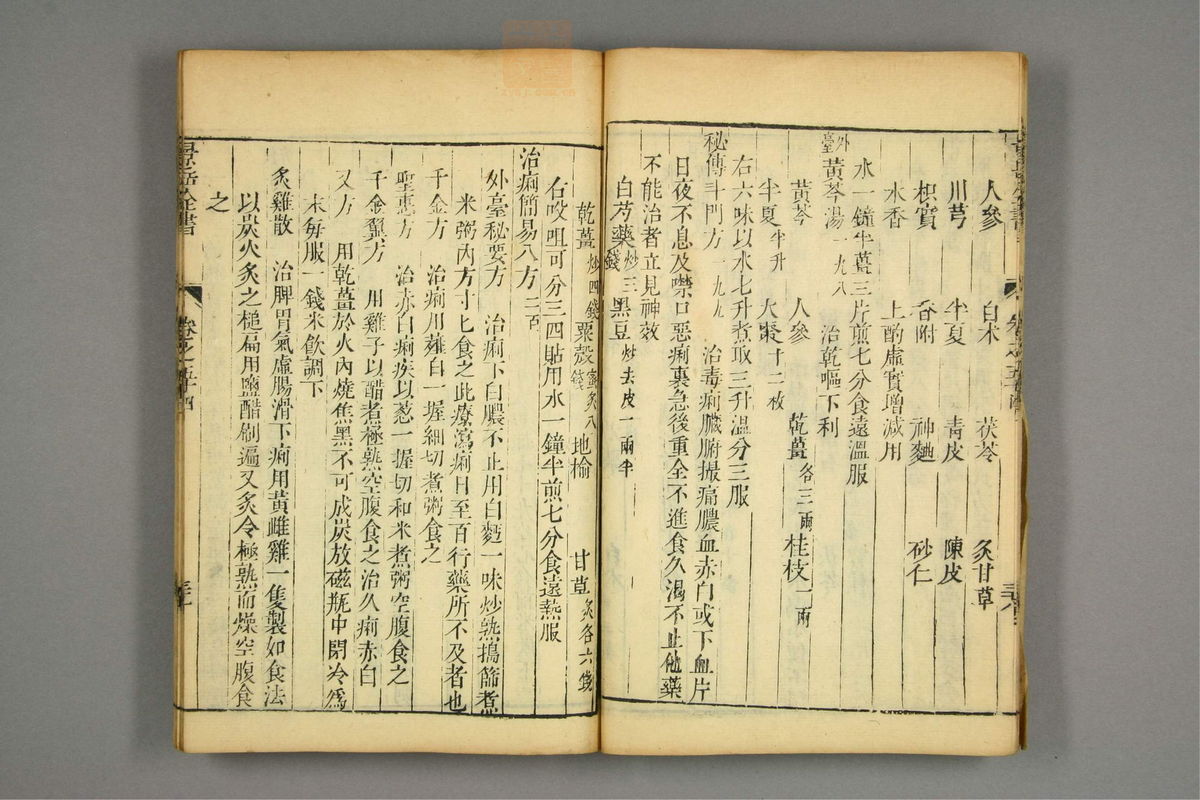 人參　白朮　茯苓　炙甘草
川芎　半夏　青皮　陳皮
枳實　香附　神麯　砂仁
木香　上酌虛實增減用
水一鐘半薑三片煎七分食遠溫服
外臺黃芩湯一九八　治乾嘔下利
黃芩　人參　乾薑各三兩　桂枝一兩
半夏半升　大棗十二枚
右六味以水七升煮取三升溫分三服
秘傳斗門方一九九　治毒痢臟腑撮痛膿血赤白或下血片
日夜不息及噤口惡痢裏急後重全不進食久渴不止他藥
不能治者立見神效
白芍藥炒三錢　黑豆炒去皮一兩半
乾薑炒四錢　粟殼蜜炙八錢　地榆　甘草炙各六錢
右㕮咀可分三四貼用水一鐘半煎七分食遠熱服
治痢簡易八方二百
外臺秘要方　治痢下白膿不止用白麪一味炒熟搗篩煮
米粥內方寸匕食之此療瀉痢日至百行藥所不及者也
千金方　治痢用薤白一握細切煮粥食之
聖惠方　治赤白痢疾以葱一握切和米煮粥空腹食之
千金翼方　用雞子以醋煮極熟空腹食之治久痢赤白
又方　用乾薑於火內燒焦黑不可成炭放磁瓶中閉冷為
末每服一錢米飲調下
炙雞散　治脾胃氣虛腸滑下痢用黃雌雞一隻製如食法
以炭火炙之槌扁用鹽醋刷遍又炙令極熟而燥空腹食
之
景岳全書
卷之五十四